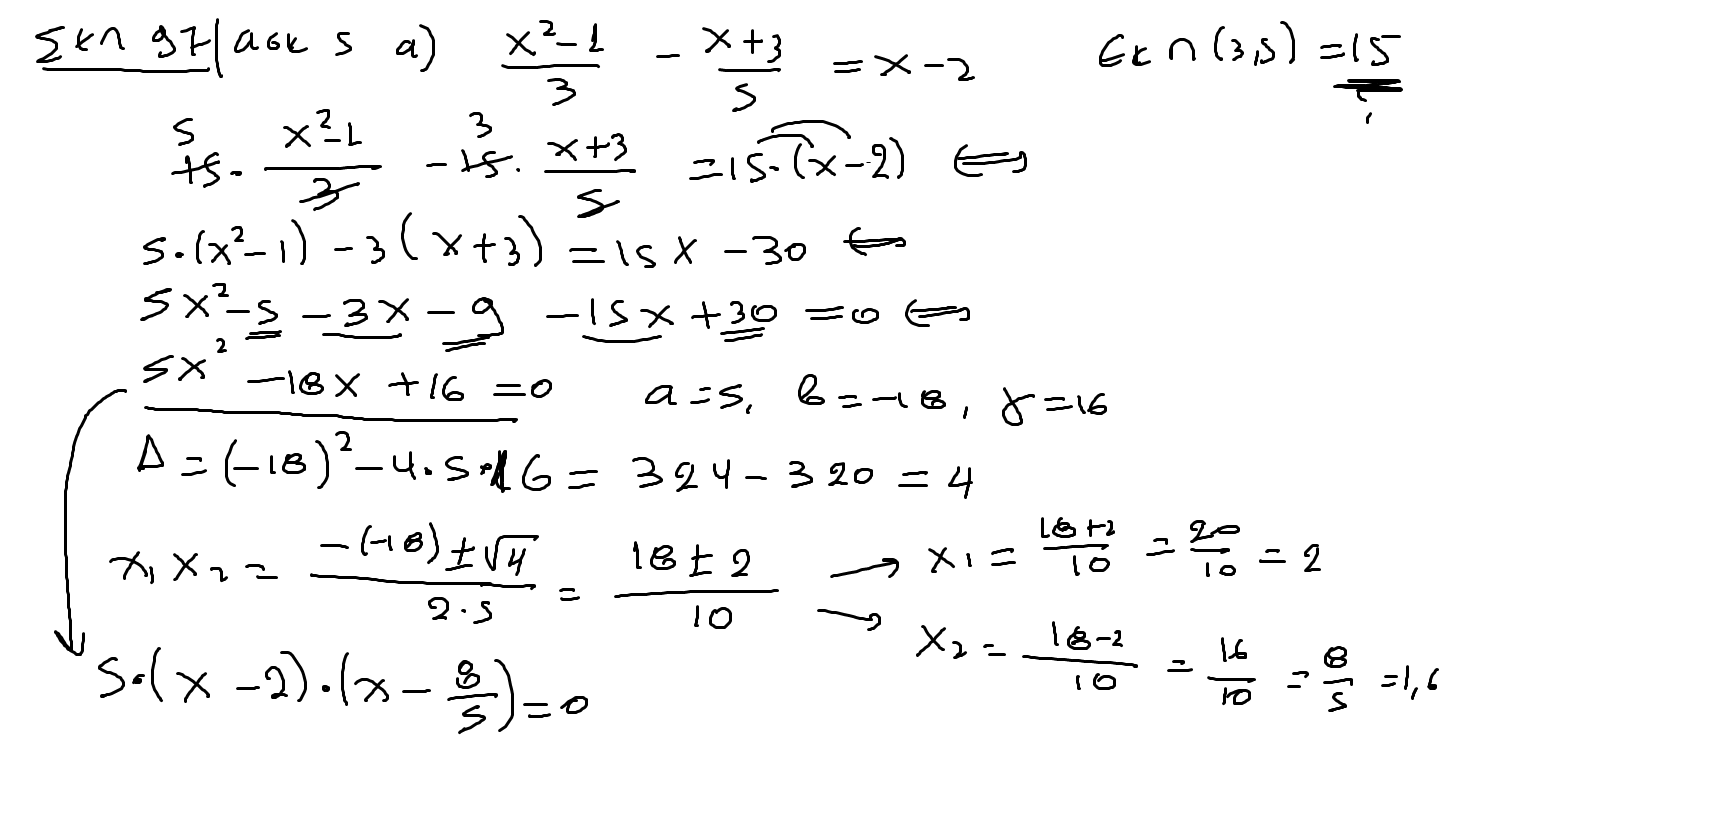 Σελ 97/ασκ 5 α) (x²-1)/3 - (x+3)/5 = x-2 ΕΚΠ(3,5) = 15
15·(x²-1)/3 - 15·(x+3)/5 = 15·(x-2) ⟺
5·(x²-1) - 3(x+3) = 15x - 30 ⟺
5x² - 5 - 3x - 9 - 15x + 30 = 0 ⟺
5x² - 18x + 16 = 0 α=5, β=-18, γ=16
Δ = (-18)² - 4·5·16 = 324 - 320 = 4
x₁ x₂ = (-(-18) ± √4)/(2·5) = (18 ± 2)/10 → x₁ = (18+2)/10 = 20/10 = 2
→ x₂ = (18-2)/10 = 16/10 = 8/5 = 1,6
5·(x-2)·(x-8/5) = 0